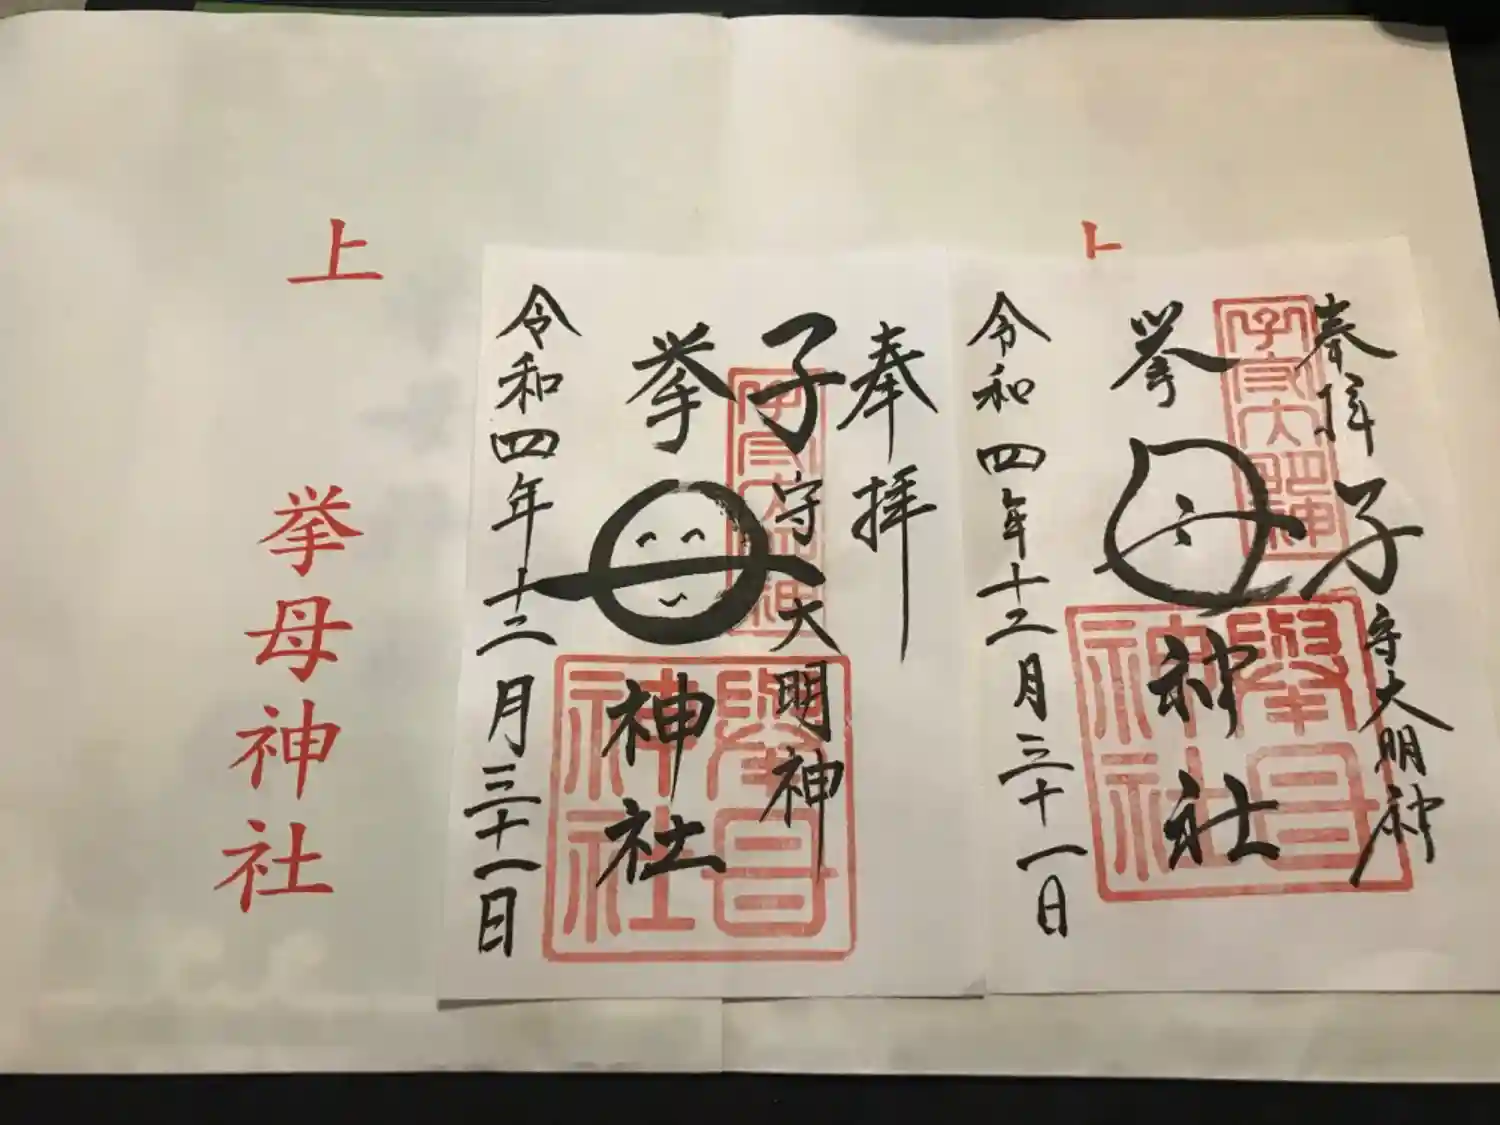 奉拝
子守大明神
挙母神社
令和四年十二月三十一日
奉拝
子守大明神
挙母神社
令和四年十二月三十一日
上
挙母神社
子守大明神
擧母神社
子守大明神
擧母神社